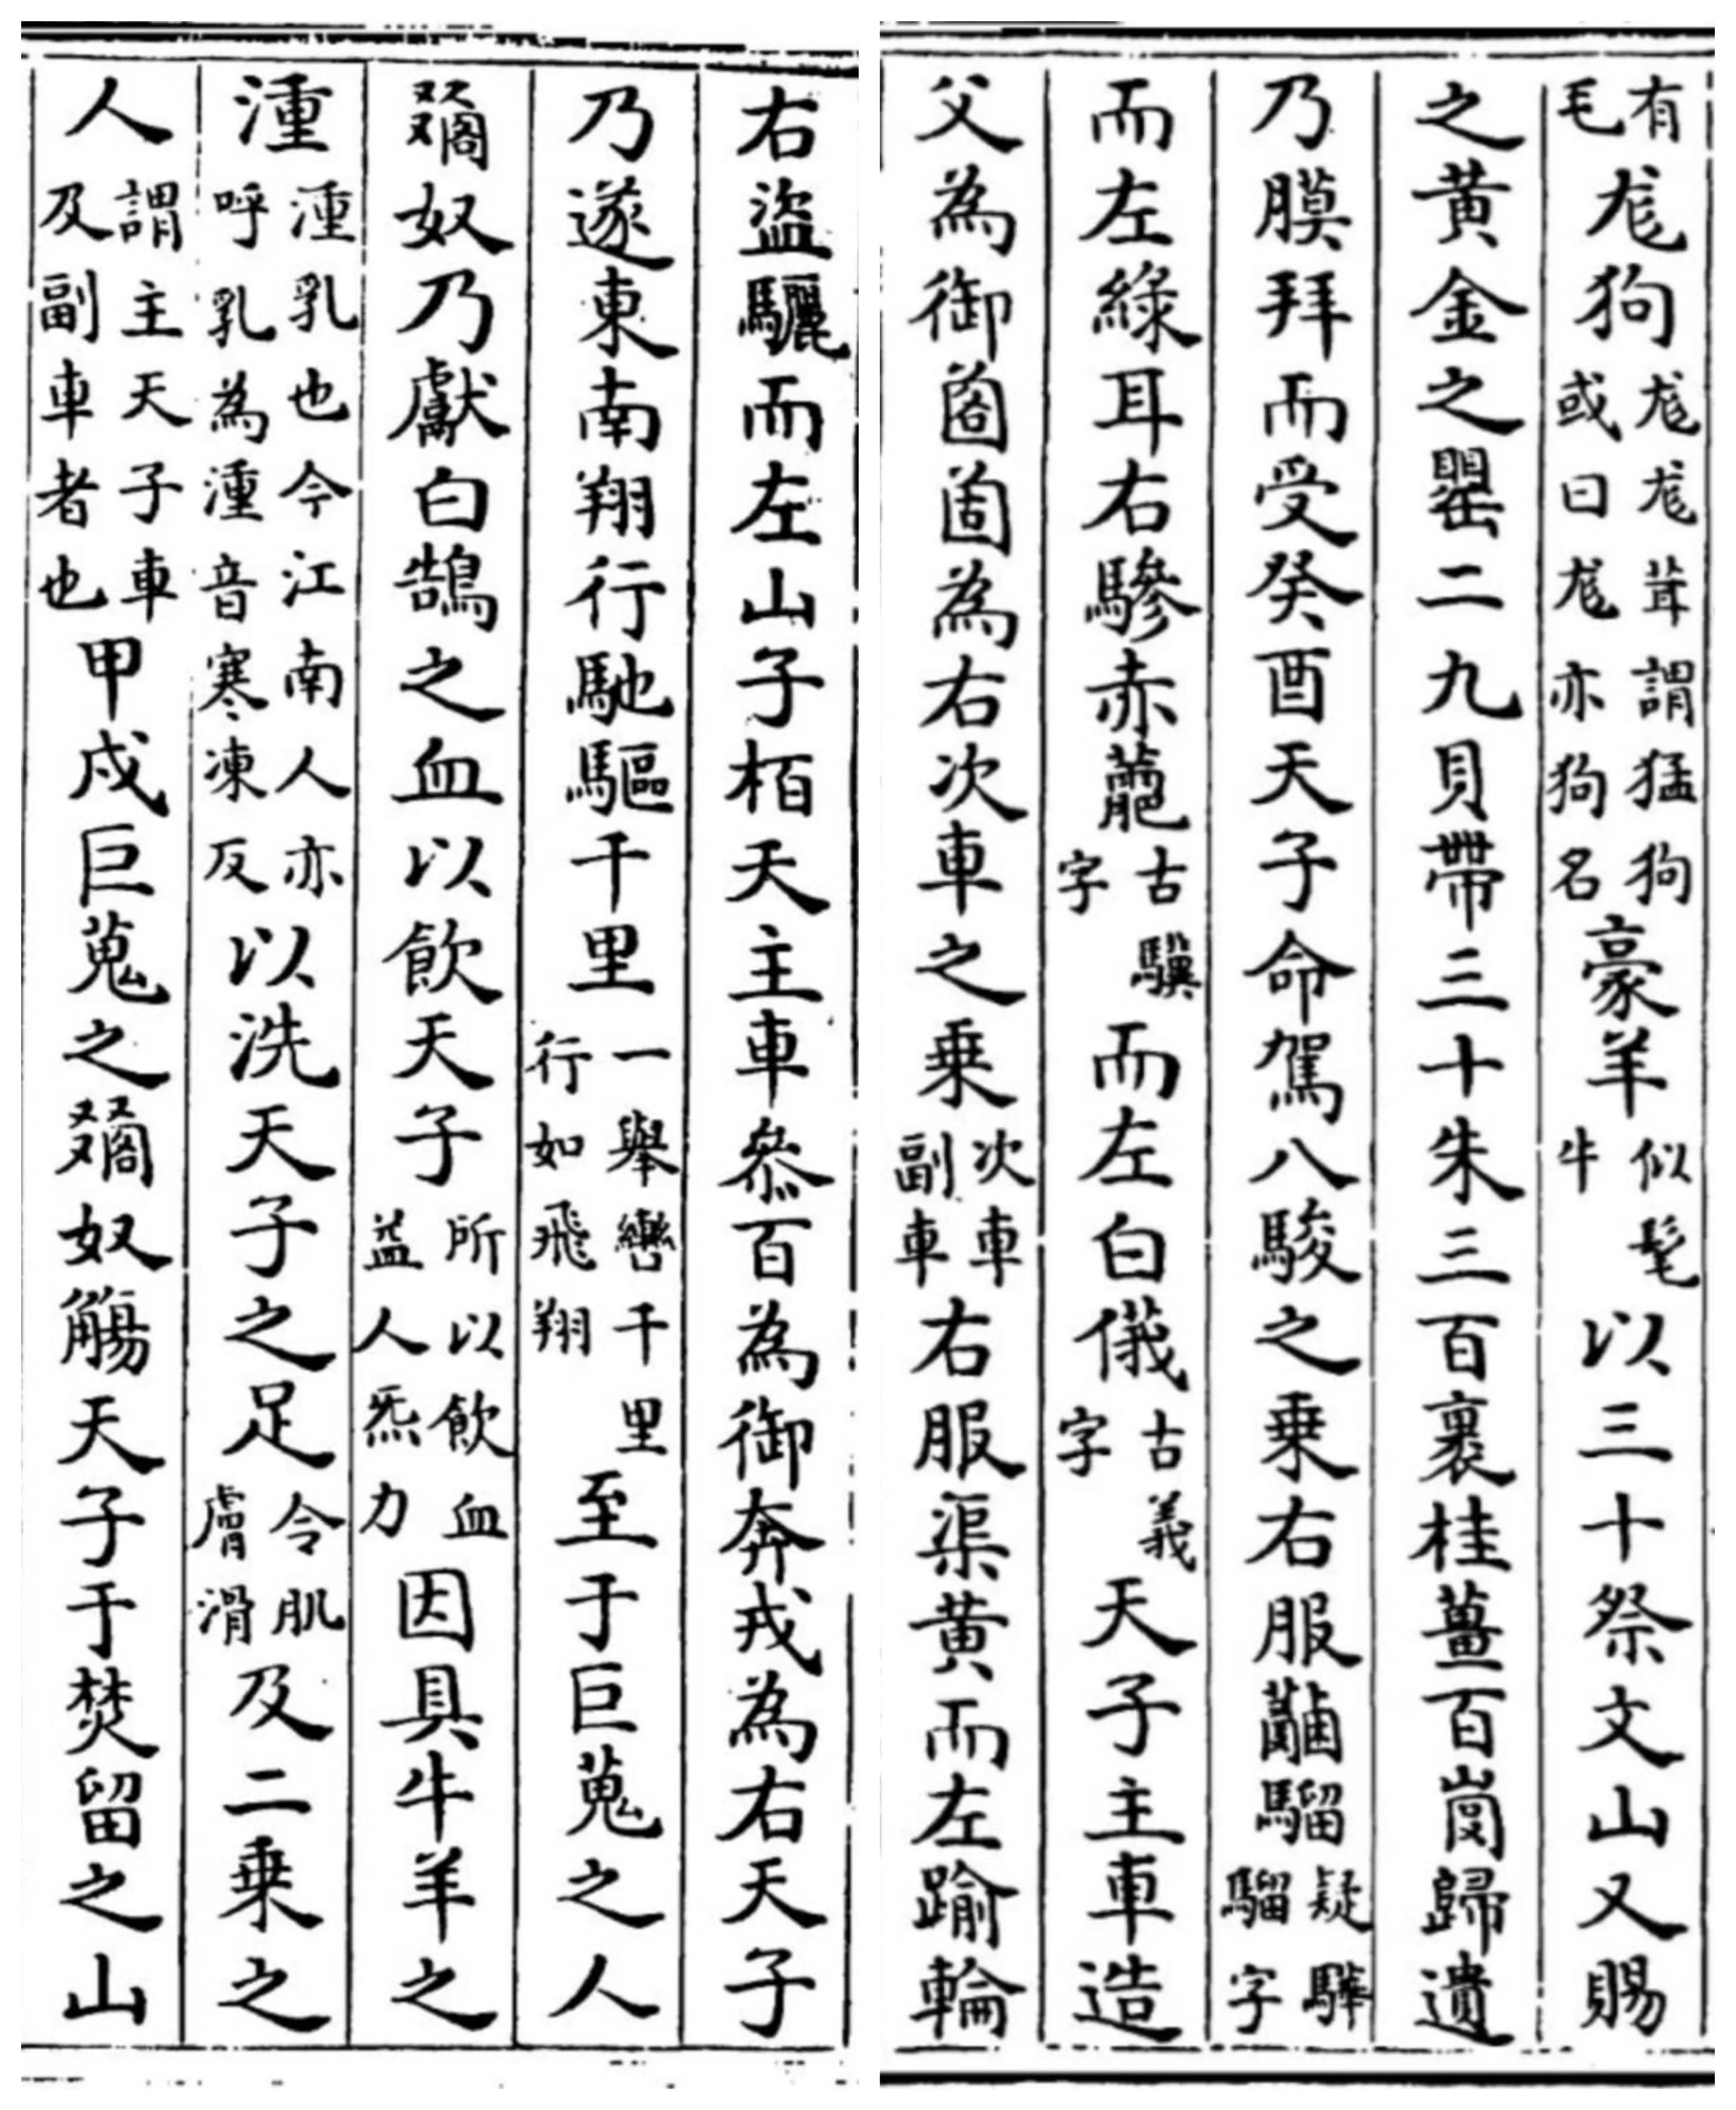 有毛尨狗尨尨茸謂猛狗或曰尨亦狗名豪羊似髦牛以三十祭文山又賜
之黃金之罌二九貝帶三十朱三百裹桂薑百崗歸遺
乃膜拜而受癸酉天子命駕八駿之乗右服騮疑驊騮字
而左綠耳右驂赤蘎古驥字而左白儀古義字天子主車造
父為御為右次車之乗次車副車右服渠黃而左踰輪
右盜驪而左山子栢天主車叅百為御奔戎為右天子
乃遂東南翔行馳驅千里一舉轡千里行如飛翔至于巨蒐之人
奴乃獻白鵠之血以飲天子所以飲血益人炁力因具牛羊之
湩湩乳也今江南人亦呼乳為湩音寒凍反以洗天子之足令肌膚滑及二乗之
人謂主天子車及副車者也甲戌巨蒐之奴觴天子于焚留之山